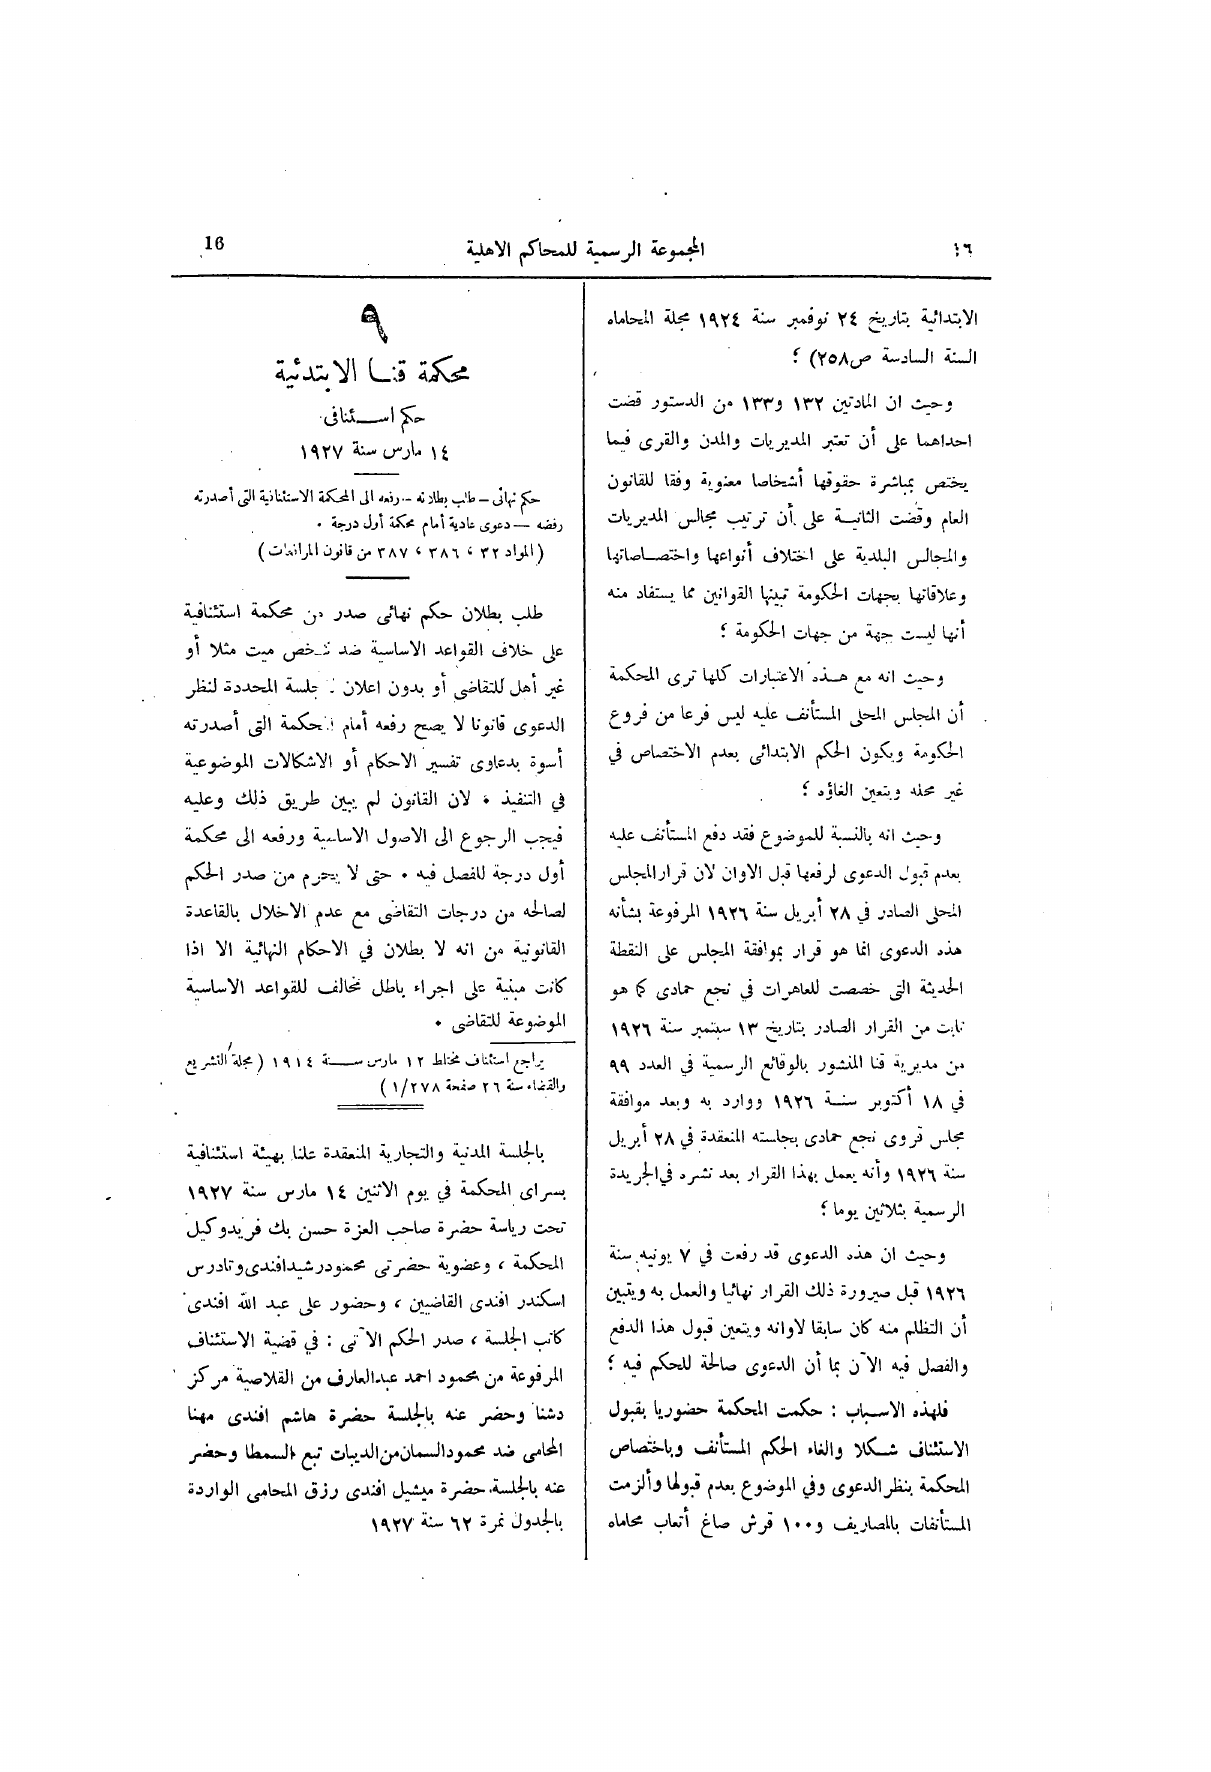 ١٦ المجموعة الرسمية للمحاكم الاهلية 16
الابتدائية بتاريخ ٢٤ نوفمبر سنة ١٩٢٤ مجلة المحاماه
السنة السادسة ص٢٥٨) ؛
وحيث ان المادتين ١٣٢ و١٣٣ من الدستور قضت
احداهما على أن تعتبر المديريات والمدن والقرى فيما
يختص بمباشرة حقوقها أشخاصا معنوية وفقا للقانون
العام وقضت الثانية على أن ترتيب مجالس المديريات
والمجالس البلدية على اختلاف أنواعها واختصاصاتها
وعلاقاتها بجهات الحكومة تبينها القوانين مما يستفاد منه
أنها ليست جهة من جهات الحكومة ؛
وحيث انه مع هذه الاعتبارات كلها ترى المحكمة
أن المجلس المحلى المستأنف عليه ليس فرعا من فروع
الحكومة ويكون الحكم الابتدائى بعدم الاختصاص في
غير محله ويتعين الغاؤه ؛
وحيث انه بالنسبة للموضوع فقد دفع المستأنف عليه
بعدم قبول الدعوى لرفعها قبل الاوان لان قرار المجلس
المحلى الصادر في ٢٨ أبريل سنة ١٩٢٦ المرفوعة بشأنه
هذه الدعوى انما هو قرار بموافقة المجلس على النقطة
الحديثة التى خصصت للعاهرات في نجع حمادى كما هو
ثابت من القرار الصادر بتاريخ ١٣ سبتمبر سنة ١٩٢٦
من مديرية قنا المنشور بالوقائع الرسمية في العدد ٩٩
في ١٨ أكتوبر سنة ١٩٢٦ ووارد به وبعد موافقة
مجلس قروى نجع حمادى بجلسته المنعقدة في ٢٨ أبريل
سنة ١٩٢٦ وأنه يعمل بهذا القرار بعد نشره في الجريدة
الرسمية بثلاثين يوما ؛
وحيث ان هذه الدعوى قد رفعت في ٧ يونيه سنة
١٩٢٦ قبل صيرورة ذلك القرار نهائيا والعمل به ويتبين
أن التظلم منه كان سابقا لاوانه ويتعين قبول هذا الدفع
والفصل فيه الآن بما أن الدعوى صالحة للحكم فيه ؛
فلهذه الاسباب : حكمت المحكمة حضوريا بقبول
الاستئناف شكلا والغاء الحكم المستأنف وباختصاص
المحكمة بنظر الدعوى وفي الموضوع بعدم قبولها وألزمت
المستأنفات بالمصاريف و١٠٠ قرش صاغ أتعاب محاماه
٩
محكمة قنا الابتدئية
حكم استئنافى
١٤ مارس سنة ١٩٢٧
حكم نهائى – طلب بطلانه – رفعه الى المحكمة الاستئنافية التى أصدرته
رفضه – دعوى عادية أمام محكمة أول درجة ٠
(المواد ٣٢ ، ٣٨٦ ، ٣٨٧ من قانون المرافعات)
طلب بطلان حكم نهائى صدر من محكمة استئنافية
على خلاف القواعد الاساسية ضد شخص ميت مثلا أو
غير أهل للتقاضى أو بدون اعلان جلسة المحددة لنظر
الدعوى قانونا لا يصح رفعه أمام المحكمة التى أصدرته
أسوة بدعاوى تفسير الاحكام أو الاشكالات الموضوعية
في التنفيذ ٠ لان القانون لم يبين طريق ذلك وعليه
فيجب الرجوع الى الاصول الاساسية ورفعه الى محكمة
أول درجة للفصل فيه ٠ حتى لا يحرم من صدر الحكم
لصالحه من درجات التقاضى مع عدم الاخلال بالقاعدة
القانونية من انه لا بطلان في الاحكام النهائية الا اذا
كانت مبنية على اجراء باطل مخالف للقواعد الاساسية
الموضوعة للتقاضى ٠
يراجع استئناف مختلط ١٢ مارس سنة ١٩١٤ (مجلة التشريع
والقضاء سنة ٢٦ صفحة ١/٢٧٨)
بالجلسة المدنية والتجارية المنعقدة علنا بهيئة استئنافية
بسراى المحكمة في يوم الاثنين ١٤ مارس سنة ١٩٢٧
تحت رياسة حضرة صاحب العزة حسن بك فريد وكيل
المحكمة ، وعضوية حضرتى محمود رشيد افندى وتادرس
اسكندر افندى القاضيين ، وحضور على عبد الله افندى
كاتب الجلسة ، صدر الحكم الآتى : في قضية الاستئناف
المرفوعة من محمود احمد عبد العارف من القلاصية مركز
دشنا وحضر عنه بالجلسة حضرة هاشم افندى مهنا
المحامى ضد محمود السمان من الديبات تبع السمطا وحضر
عنه بالجلسة حضرة ميشيل افندى رزق المحامى الواردة
بالجدول نمرة ٦٢ سنة ١٩٢٧